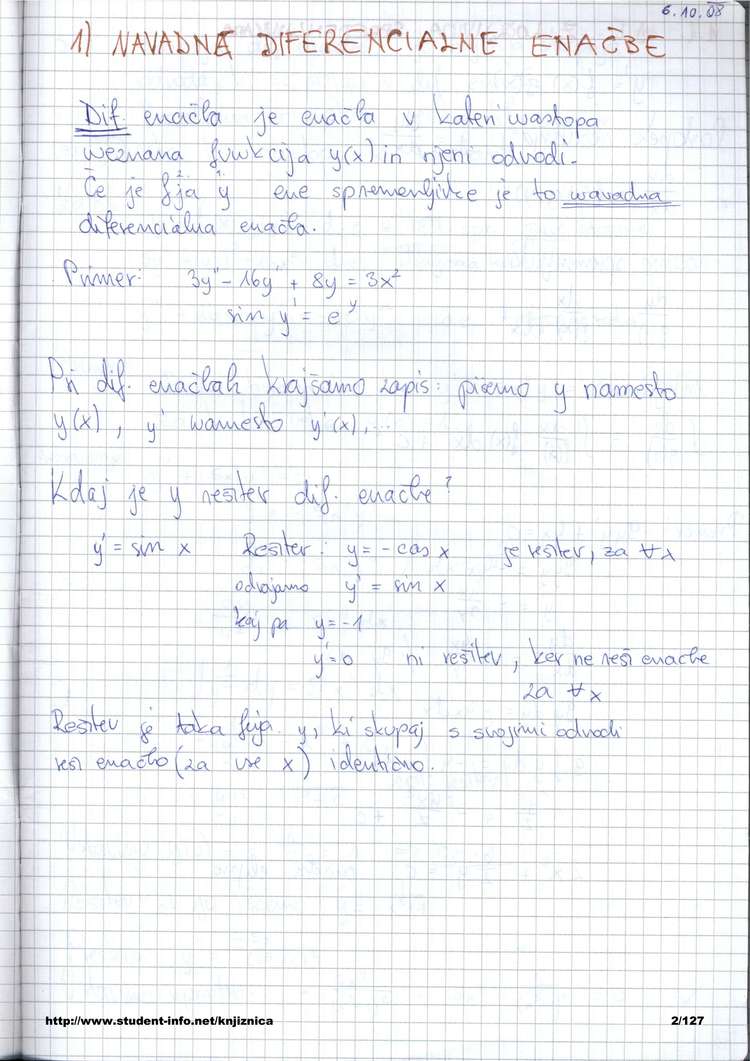 6.10.08
1) NAVADNE DIFERENCIALNE ENAČBE
Dif. enačba je enačba v kateri nastopa
neznana funkcija y(x) in njeni odvodi.
Če je fja y ene spremenljivke je to navadna
diferencialna enačba.
Primer: 3y'' - 16y' + 8y = 3x²
sin y' = e^y
Pri dif. enačbah krajšamo zapis: pišemo y namesto
y(x), y' namesto y'(x), ...
Kdaj je y rešitev dif. enačbe?
y' = sin x Rešitev: y = -cos x je rešitev, za ∀x
odvajamo y' = sin x
kaj pa y = -1
y' = 0 ni rešitev, ker ne reši enačbe
za ∀x
Rešitev je taka fija y, ki skupaj s svojimi odvodi
reši enačbo (za vse x) identično.
http://www.student-info.net/knjiznica 2/127